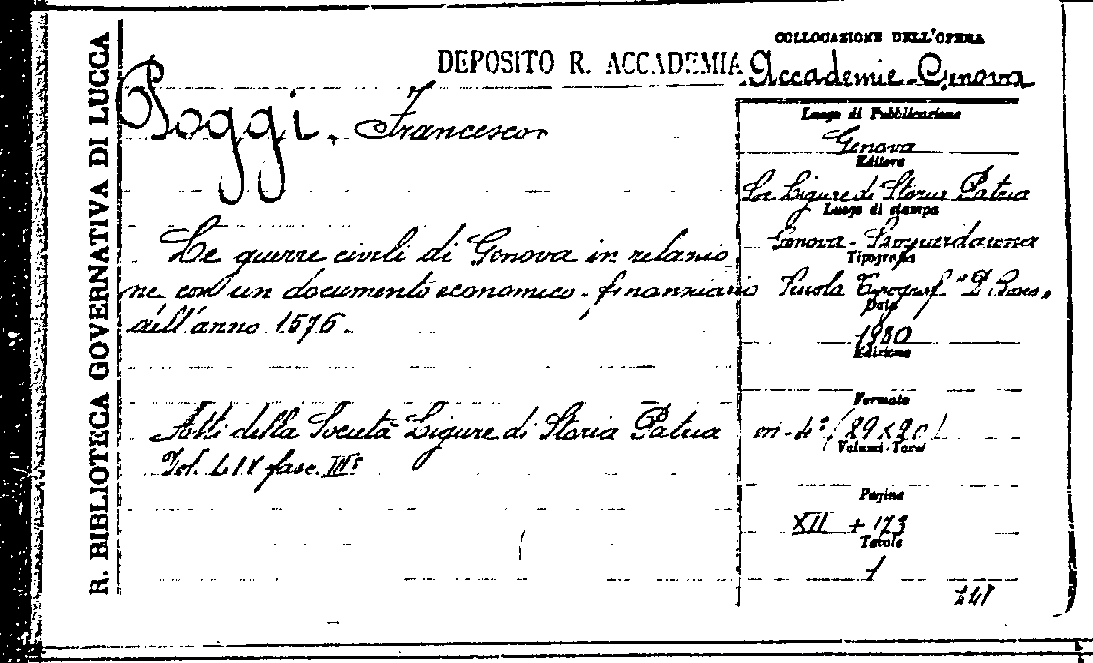 R. BIBLIOTECA GOVERNATIVA DI LUCCA
DEPOSITO R. ACCADEMIA
COLLOCAZIONE DELL'OPERA
Accademie-Genova
Poggi, Francesco
Le guerre civili di Genova in relazio
ne con un documento economico-finanziario
dell'anno 1576.
Atti della Società Ligure di Storia Patria
Vol. LIV fasc. III°
Luogo di Pubblicazione
Genova
Editore
Soc Ligure di Storia Patria
Luogo di stampa
Genova-
Tipografia
Scuola Tipograf. "D. Bosco"
Data
1930
Edizione
Formato
in-4° (29x20)
Volumi-Tomi
Pagine
XII + 173
Tavole
1